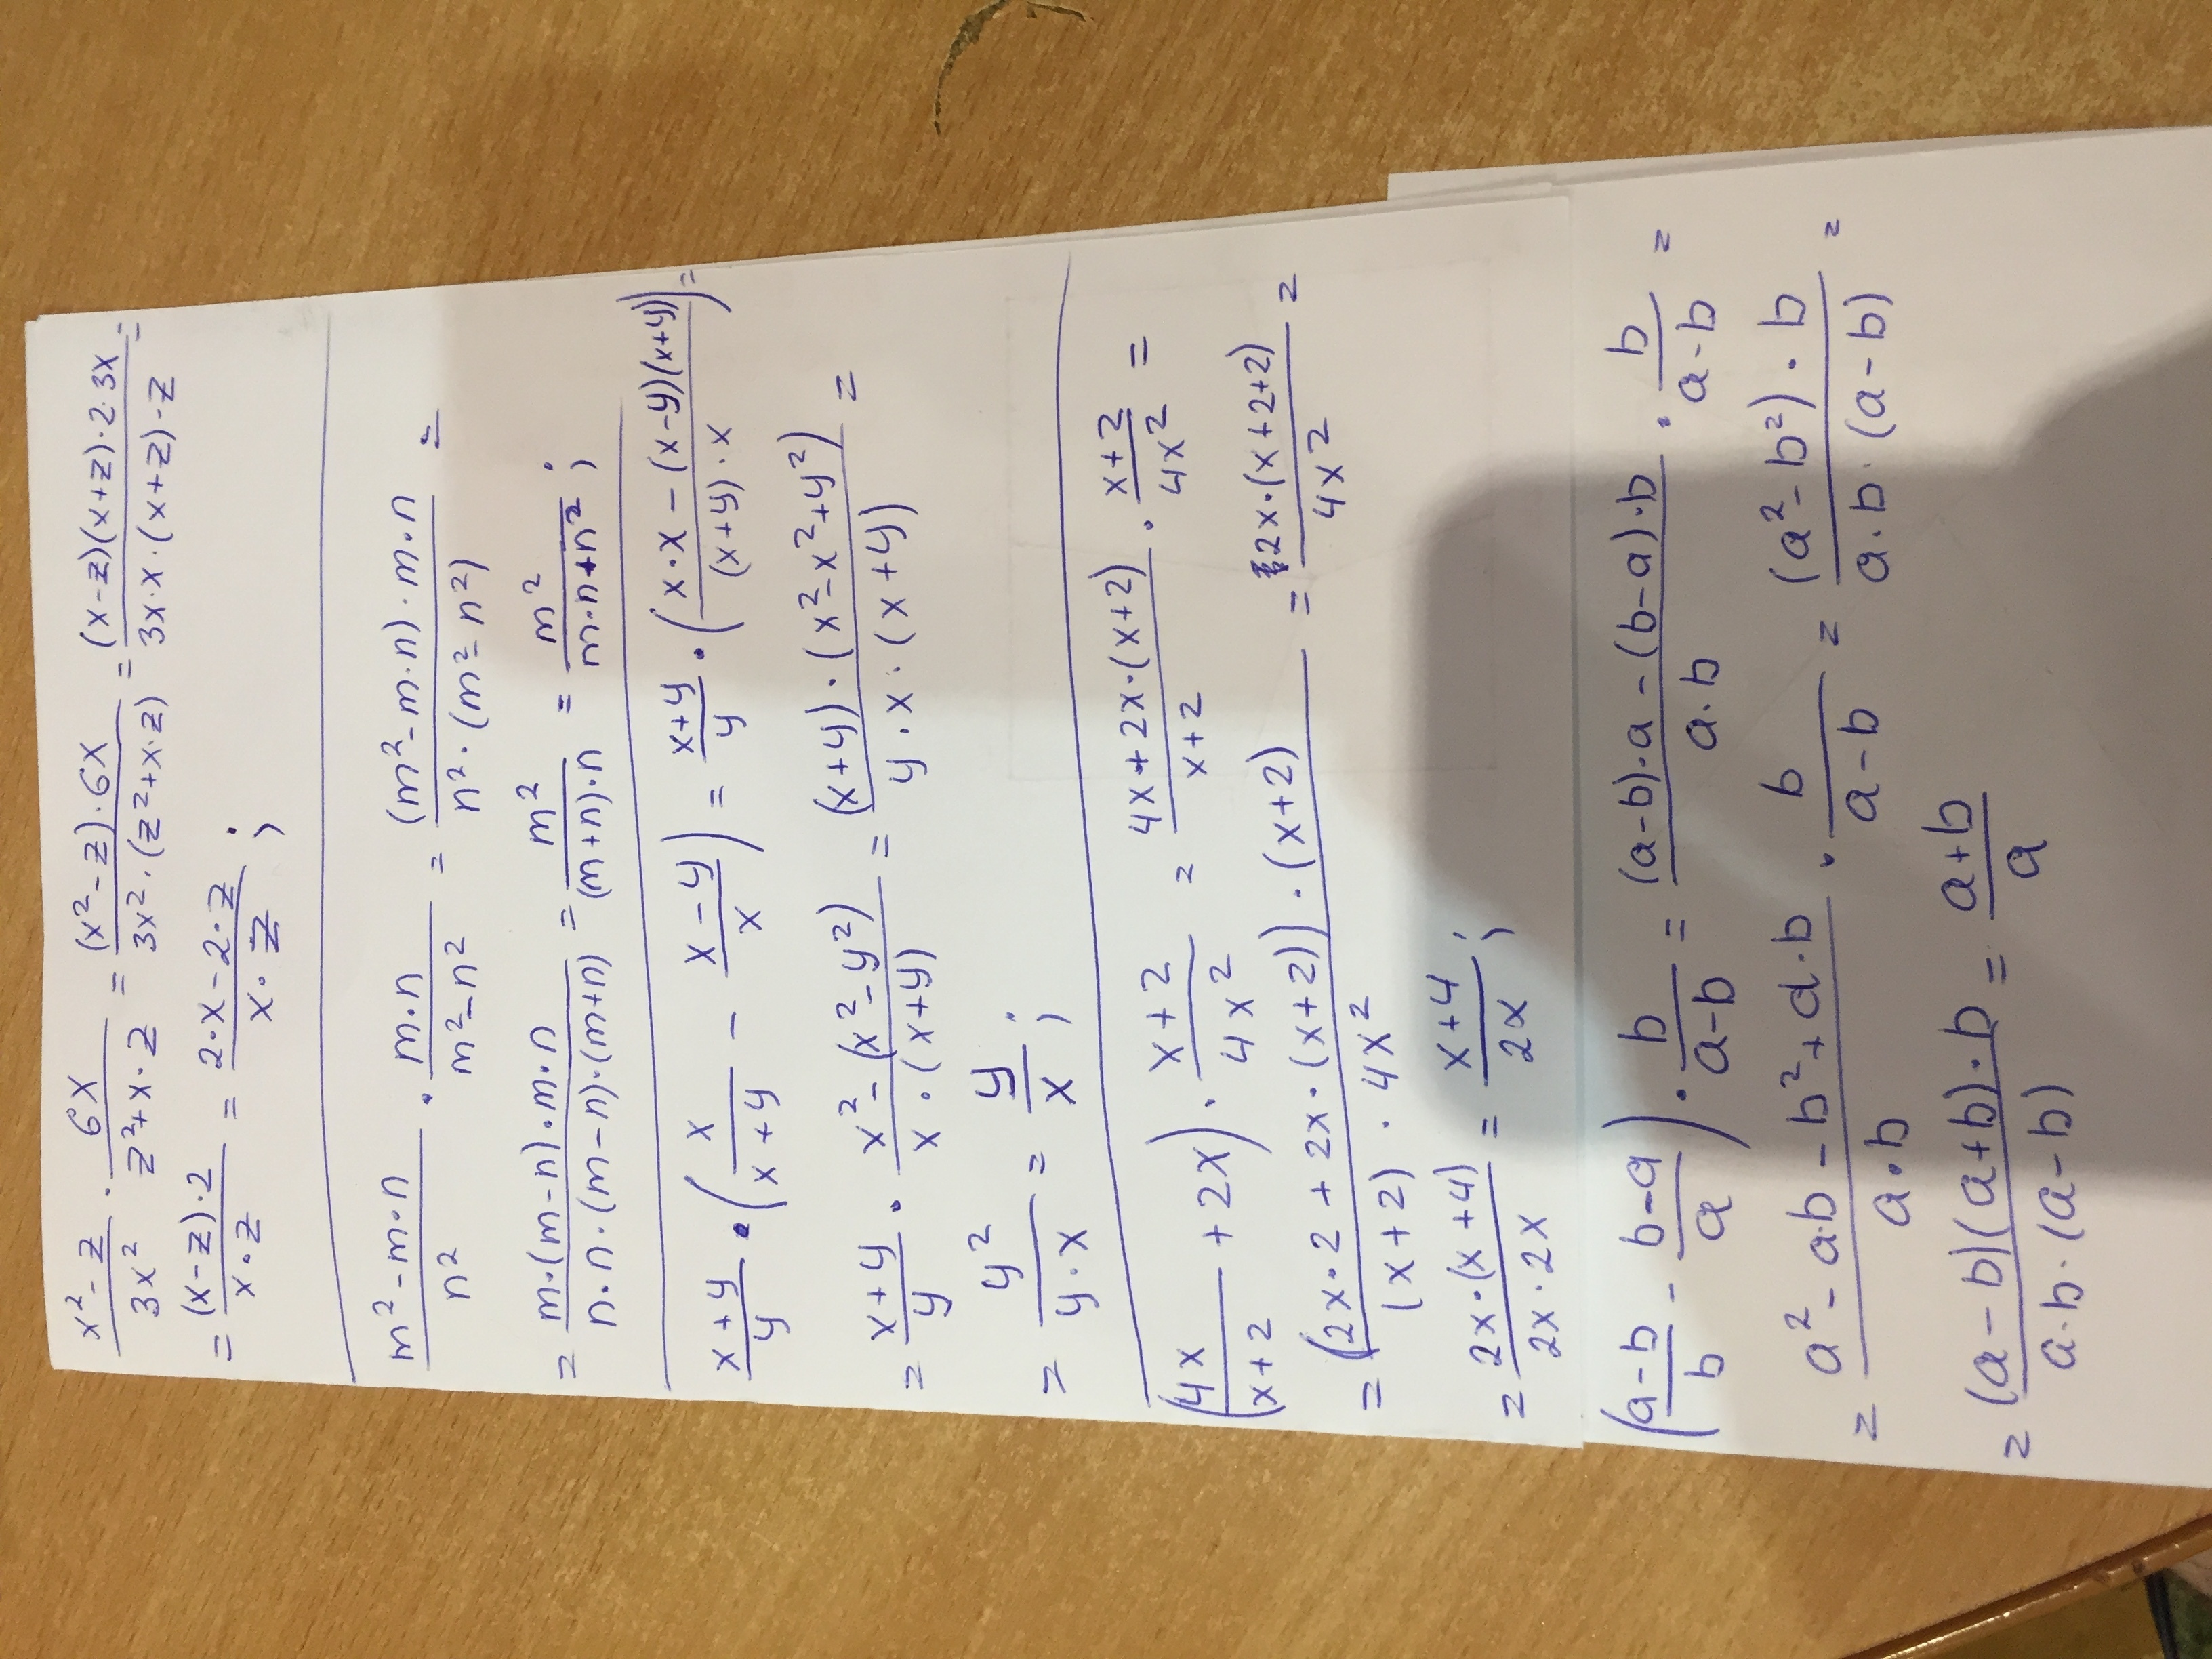 (x²-z)/(3x²) · 6x/(z²+x·z) = ((x²-z)·6x)/(3x²·(z²+x·z)) = ((x-z)(x+z)·2·3x)/(3x·x·(x+z)·z) =
= ((x-z)·2)/(x·z) = (2·x-2·z)/(x·z) ;
(m²-m·n)/n² · (m·n)/(m²-n²) = ((m²-m·n)·m·n)/(n²·(m²-n²)) =
= (m·(m-n)·m·n)/(n·n·(m-n)·(m+n)) = m²/((m+n)·n) = m²/(m·n+n²) ;
(x+y)/y · (x/(x+y) - (x-y)/x) = (x+y)/y · ((x·x-(x-y)(x+y))/((x+y)·x)) =
= (x+y)/y · (x²-(x²-y²))/(x·(x+y)) = ((x+y)·(x²-x²+y²))/(y·x·(x+y)) =
= y²/(y·x) = y/x ;
(4x/(x+2) + 2x) · (x+2)/(4x²) = (4x+2x·(x+2))/(x+2) · (x+2)/(4x²) =
= ((2x·2+2x·(x+2))·(x+2))/((x+2)·4x²) = (2x·(x+2+2))/(4x²) =
= (2x·(x+4))/(2x·2x) = (x+4)/(2x) ;
((a-b)/b - (b-a)/a) · b/(a-b) = ((a-b)·a-(b-a)·b)/(a·b) · b/(a-b) =
= (a²-ab-b²+a·b)/(a·b) · b/(a-b) = ((a²-b²)·b)/(a·b·(a-b)) =
= ((a-b)(a+b)·b)/(a·b·(a-b)) = (a+b)/a